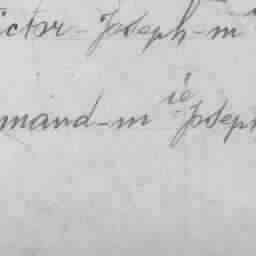 ictor-Joseph-m
mand-m ie Joseph